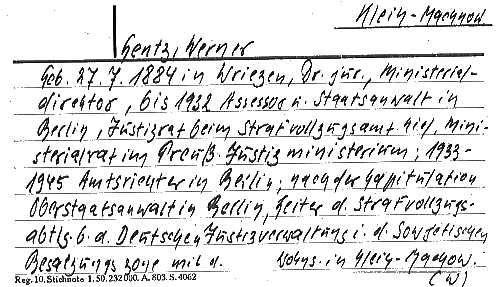 Klein-Machnow
Gentz, Werner
Geb. 27.7.1884 in Wriezen, Dr. jur., Ministerial-
direktor, bis 1932 Assessor u. Staatsanwalt in
Berlin, Justizrat beim Strafvollzugsamt Kiel, Mini-
sterialrat im Preuß. Justizministerium; 1933-
1945 Amtsrichter in Berlin; nach der Kapitulation
Oberstaatsanwalt in Berlin, Leiter d. Strafvollzugs-
abtlg. b. d. Deutschen Justizverwaltung i. d. Sowjetischen
Besatzungszone mit d. Wohns. in Klein-Machnow.
(W)
Reg. 10. Stichnote 1. 50. 232000. A. 803. S. 4062